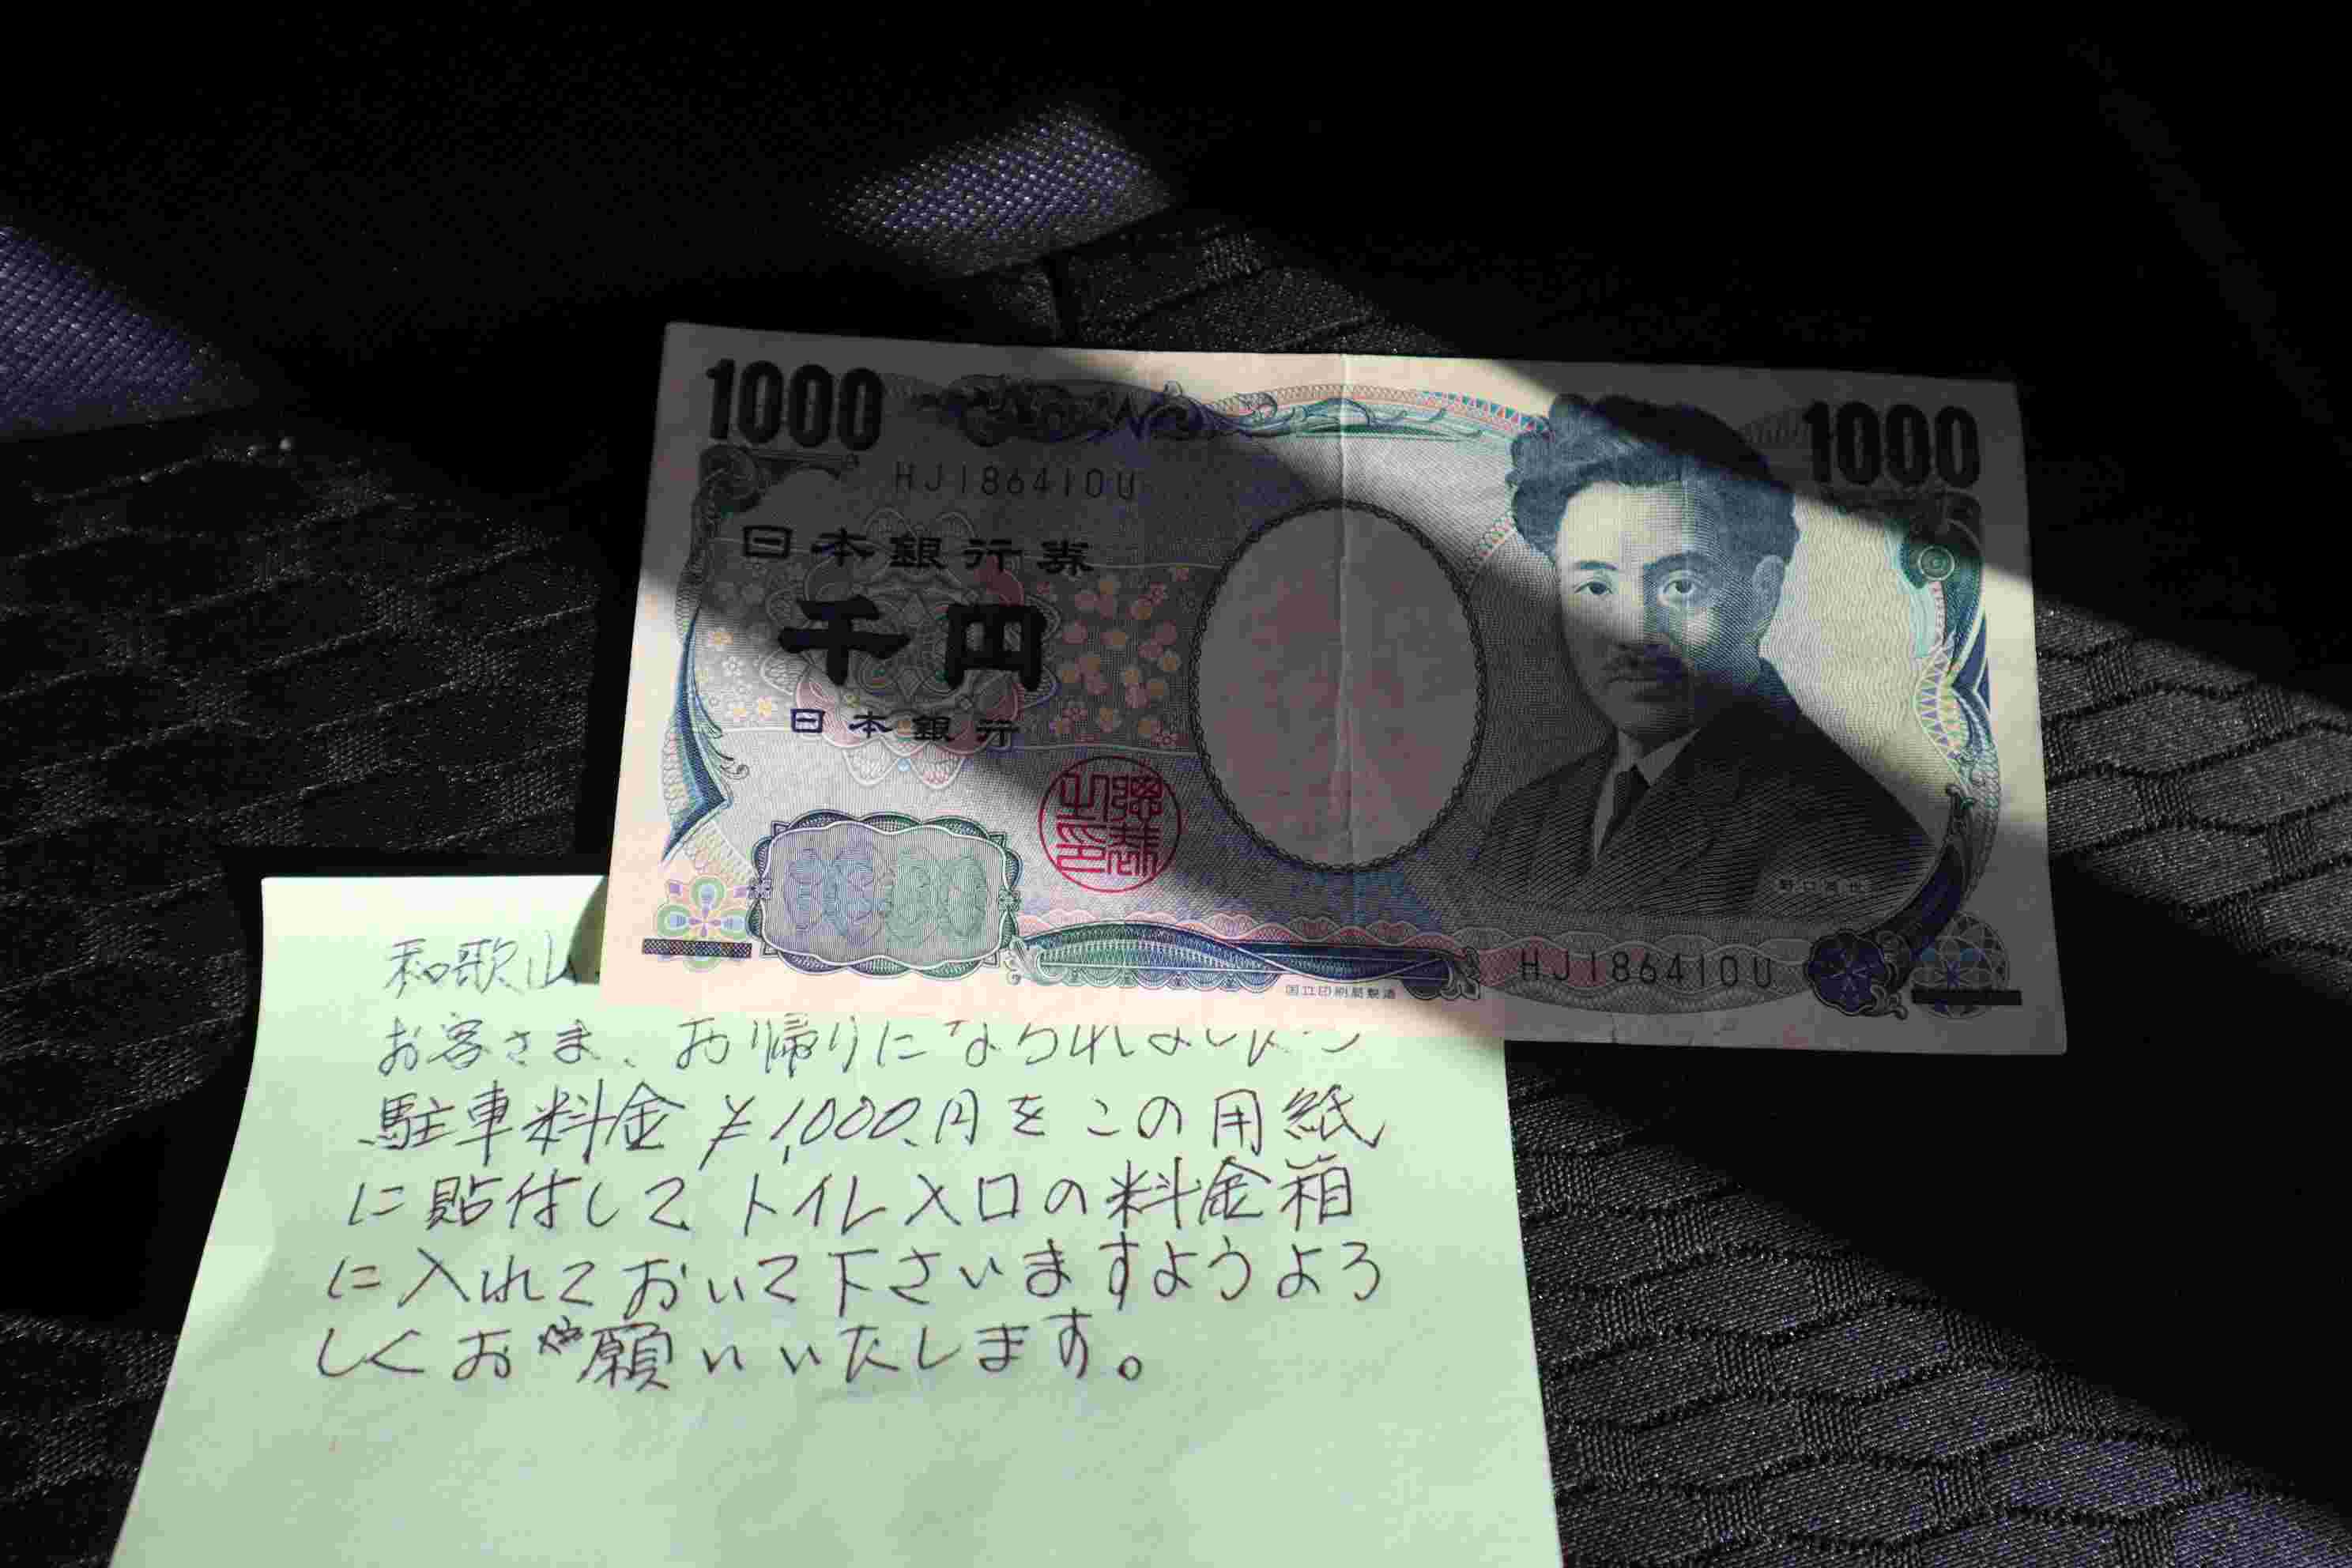 1000
1000
HJ186410U
日本銀行券
千円
日本銀行
野口英世
HJ186410U
国立印刷局製造
和歌山
お客さま、お帰りになられましたら
駐車料金¥1,000.円をこの用紙
に貼付して トイレ入口の料金箱
に入れておいて下さいますようよろ
しくお願いいたします。